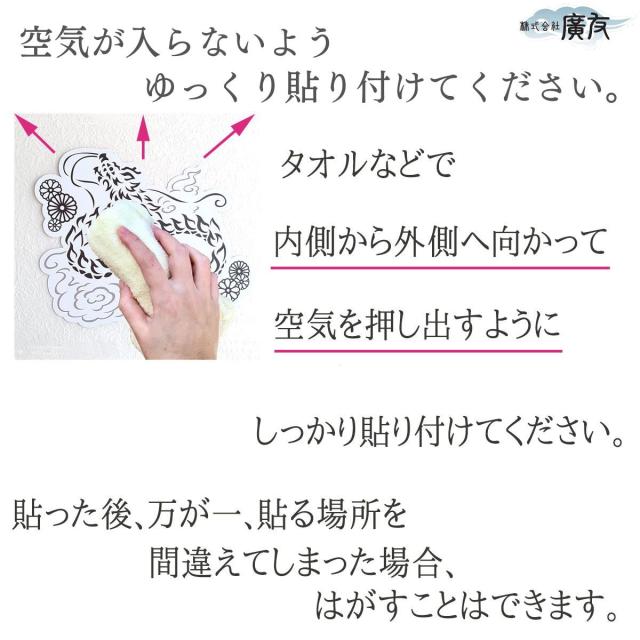 株式会社 廣友
空気が入らないよう
ゆっくり貼り付けてください。
タオルなどで
内側から外側へ向かって
空気を押し出すように
しっかり貼り付けてください。
貼った後、万が一、貼る場所を
間違えてしまった場合、
はがすことはできます。